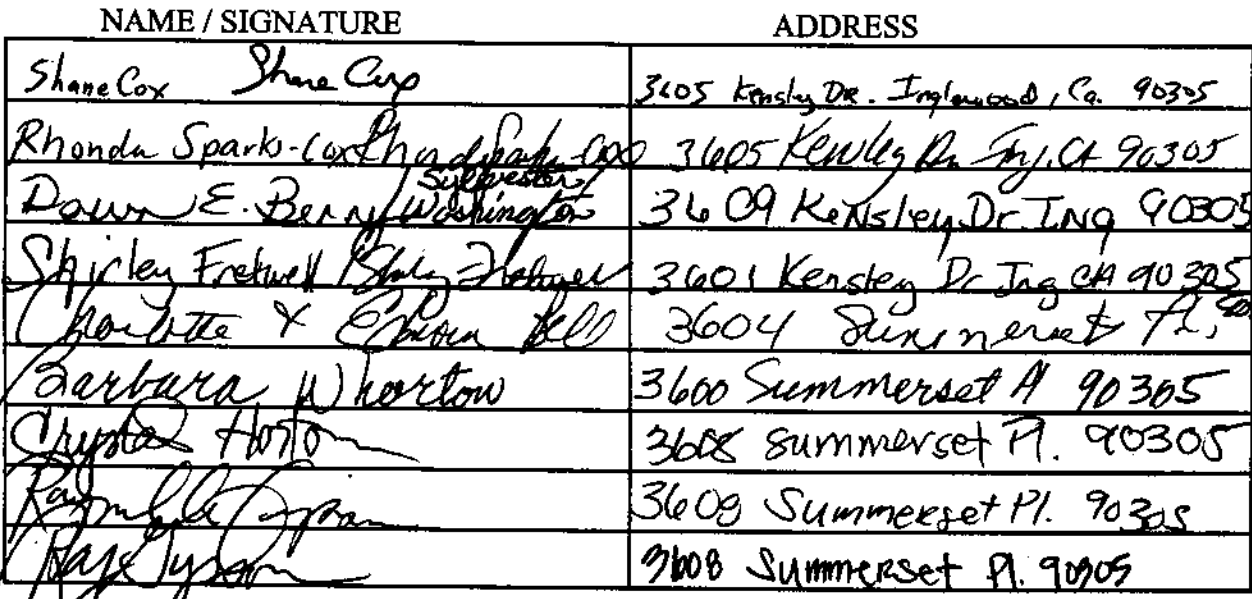 NAME / SIGNATURE ADDRESS
Shane Cox Shane Cox 3605 Kensley DR. Inglewood, Ca. 90305
Rhonda Sparks-Cox Rhonda Sparks-Cox 3605 Kensley Dr Ing, CA 90305
Dawn E. Berry / Sylvester Washington 3609 Kensley Dr. Ing 90305
Shirley Fretwell / Shirley Fretwell 3601 Kensley Dr Ing CA 90305
Charlotte & Bell 3604 Summerset Pl,
Barbara Whorton 3600 Summerset Pl 90305
Crystal Horton 3608 summerset Pl. 90305
3608 Summerset Pl. 90305
Ray Tyson 3608 Summerset Pl. 90305